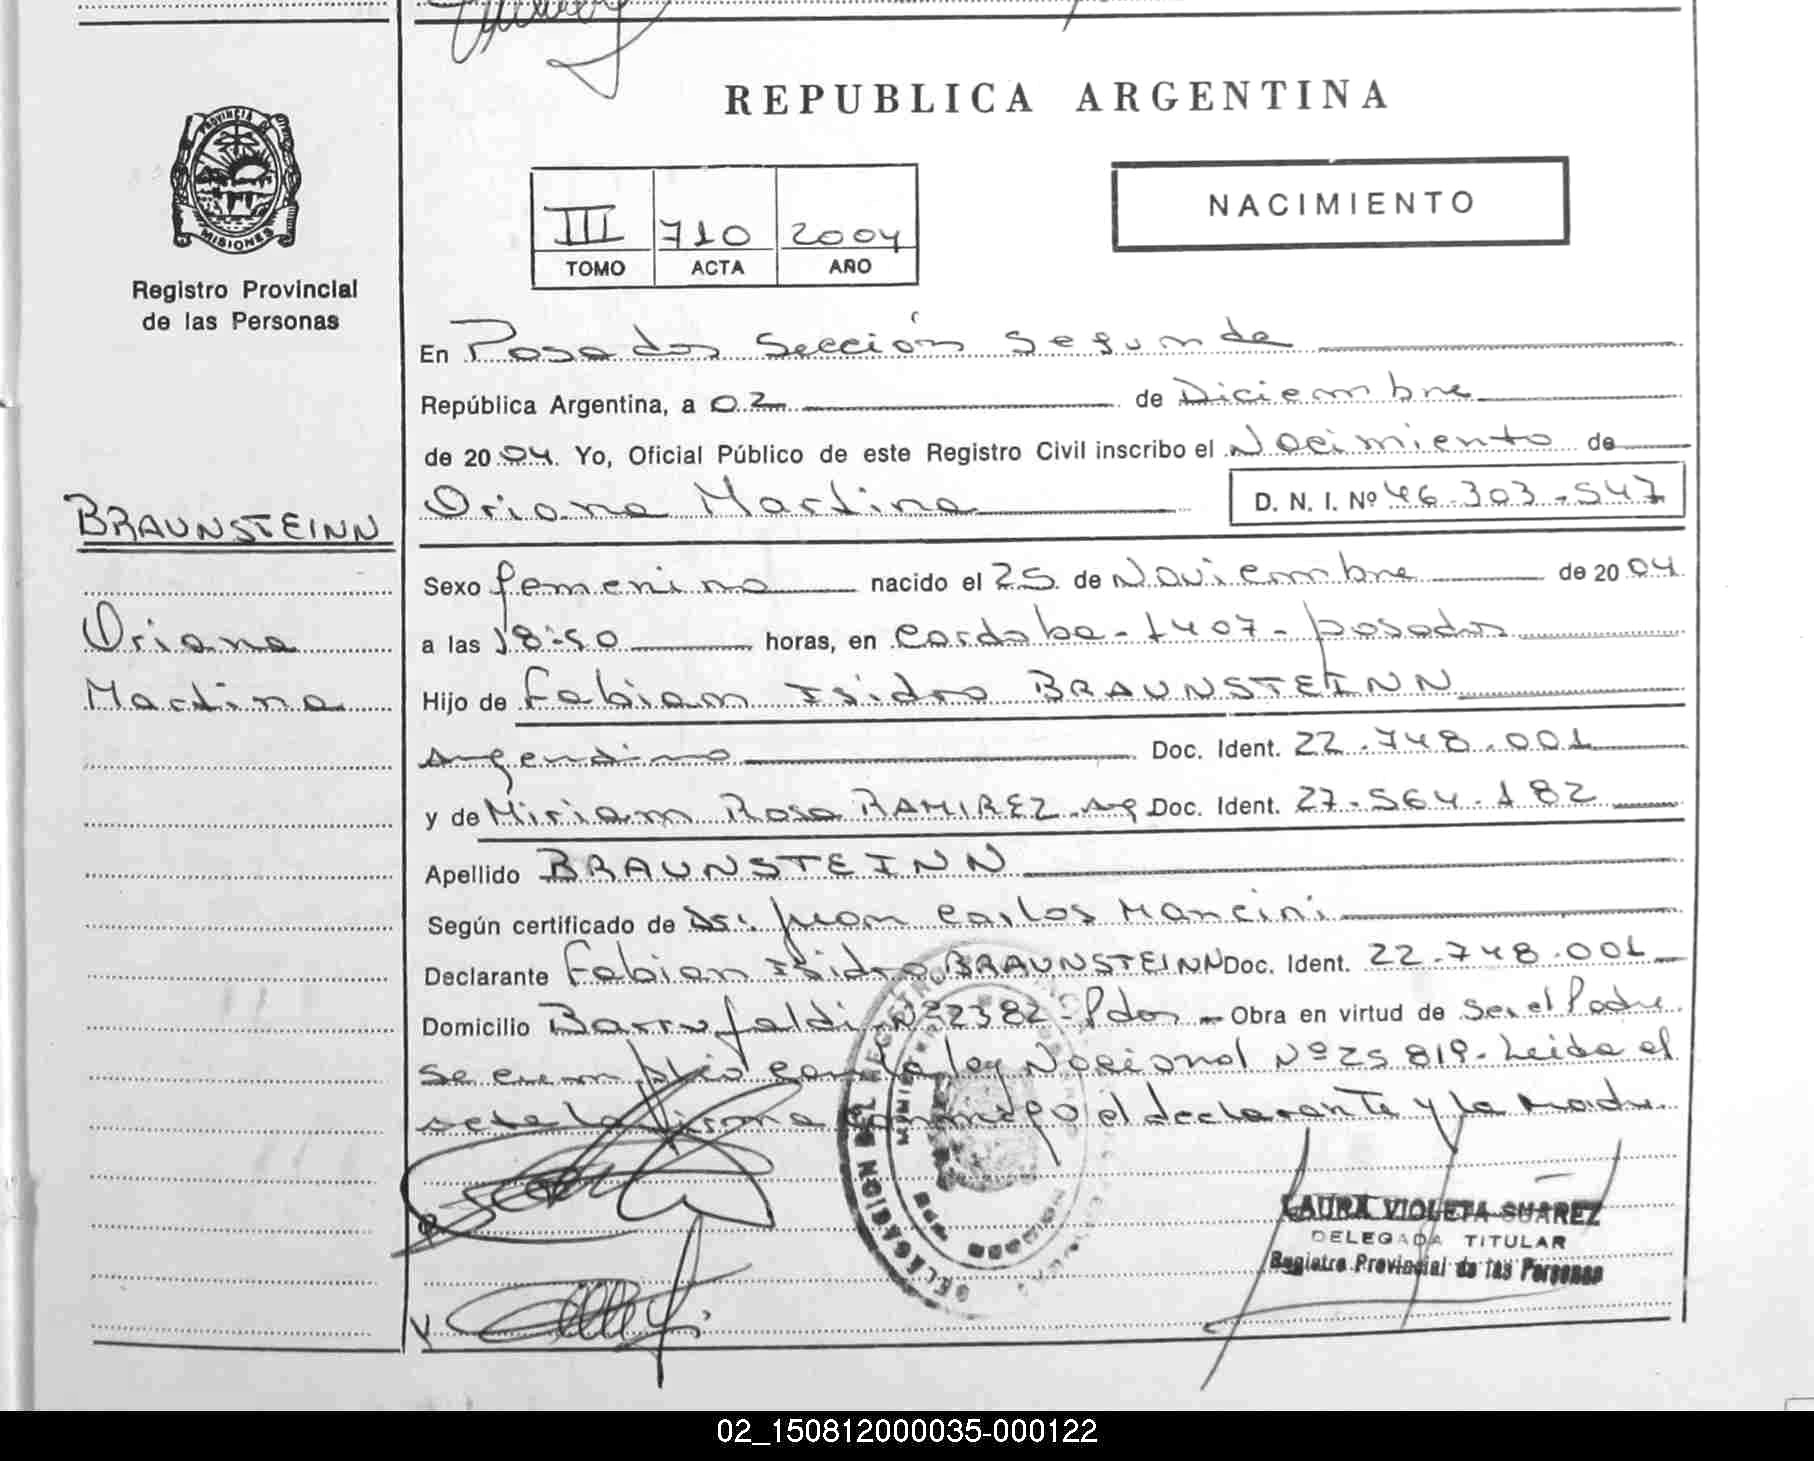 REPUBLICA ARGENTINA
PROVINCIA DE
MISIONES
Registro Provincial
de las Personas
III 710 2004
TOMO ACTA AÑO
NACIMIENTO
En Posadas Sección Segunda
República Argentina, a 02 de Diciembre
de 2004. Yo, Oficial Público de este Registro Civil inscribo el Nacimiento de
Oriana Martina
D. N. I. Nº 46.303.547
BRAUNSTEINN
Oriana
Martina
Sexo femenino nacido el 25 de Noviembre de 2004
a las 18:50 horas, en Cordoba - 1407 - posadas
Hijo de Fabian Isidro BRAUNSTEINN
Argentino Doc. Ident. 22.748.001
y de Miriam Rosa RAMIREZ Arg Doc. Ident. 27.564.182
Apellido BRAUNSTEINN
Según certificado de Dr. Juan Carlos Mancini
Declarante Fabian Isidro BRAUNSTEINN Doc. Ident. 22.748.001
Domicilio Barrufaldi Nº 2382 - Pdas - Obra en virtud de Ser el Padre
Se cumplió con la ley Nacional Nº 25.819. Leida el
acta la firma conmigo el declarante y la madre.
LAURA VIOLETA SUAREZ
DELEGADA TITULAR
Registro Provincial de las Personas
02_150812000035-000122